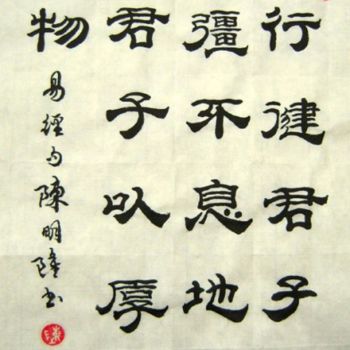 行健君子
彊不息地
君子以厚
物
易經句陳明書